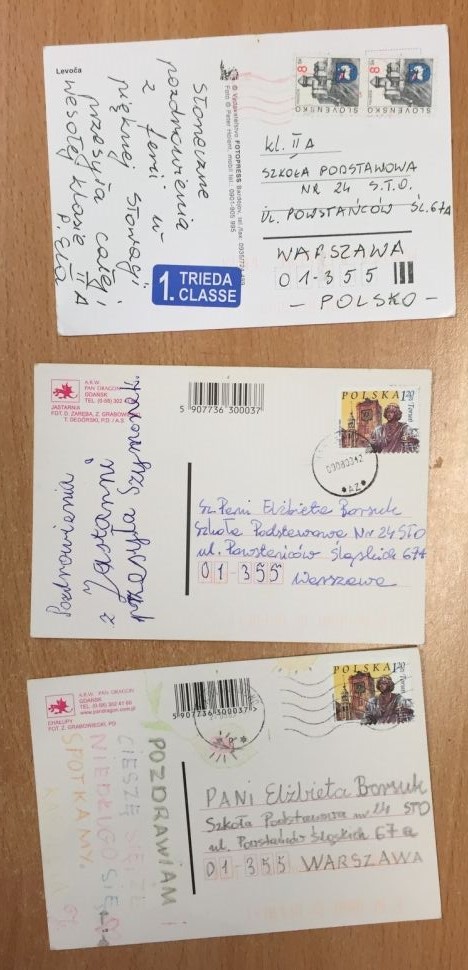 Levoča
Słoneczne
pozdrowienia
z ferii w
pięknej Słowacji
przesyła całej
wesołej klasie II A
P. Ela
© Vydavateľstvo FOTOPRESS Bardejov
Foto © Peter
SLOVENSKO
8
SLOVENSKO
8
1. TRIEDA
CLASSE
kl. II A
SZKOŁA PODSTAWOWA
NR 24 S.T.O.
UL. POWSTAŃCÓW ŚL. 67A
WARSZAWA
01-355
- POLSKO -
A.R.W.
PAN DRAGON
GDAŃSK
JASTARNIA
FOT. D. ZARĘBA, Z. GRABOWIECKI
T. DEGÓRSKI, P.D. / A.S
5 907736 300037
POLSKA 1,20
Toruń
Pozdrowienia
z Jastarni
przesyła Szymonek.
Sz. Pani Elżbieta Borsuk
Szkoła Podstawowa Nr 24 STO
ul. Powstańców Śląskich 67A
01-355
Warszawa
A.R.W. PAN DRAGON
GDAŃSK
www.pandragon.com.pl
CHAŁUPY
FOT. Z. GRABOWIECKI, PD
5 907736 300037
POLSKA 1,20
Toruń
POZDRAWIAM!
CIESZĘ SIĘ ŻE
NIEDŁUGO SIĘ
SPOTKAMY.
PANI Elżbieta Borsuk
Szkoła Podstawowa nr 24 STO
ul. Powstańców Śląskich 67a
01-355 WARSZAWA